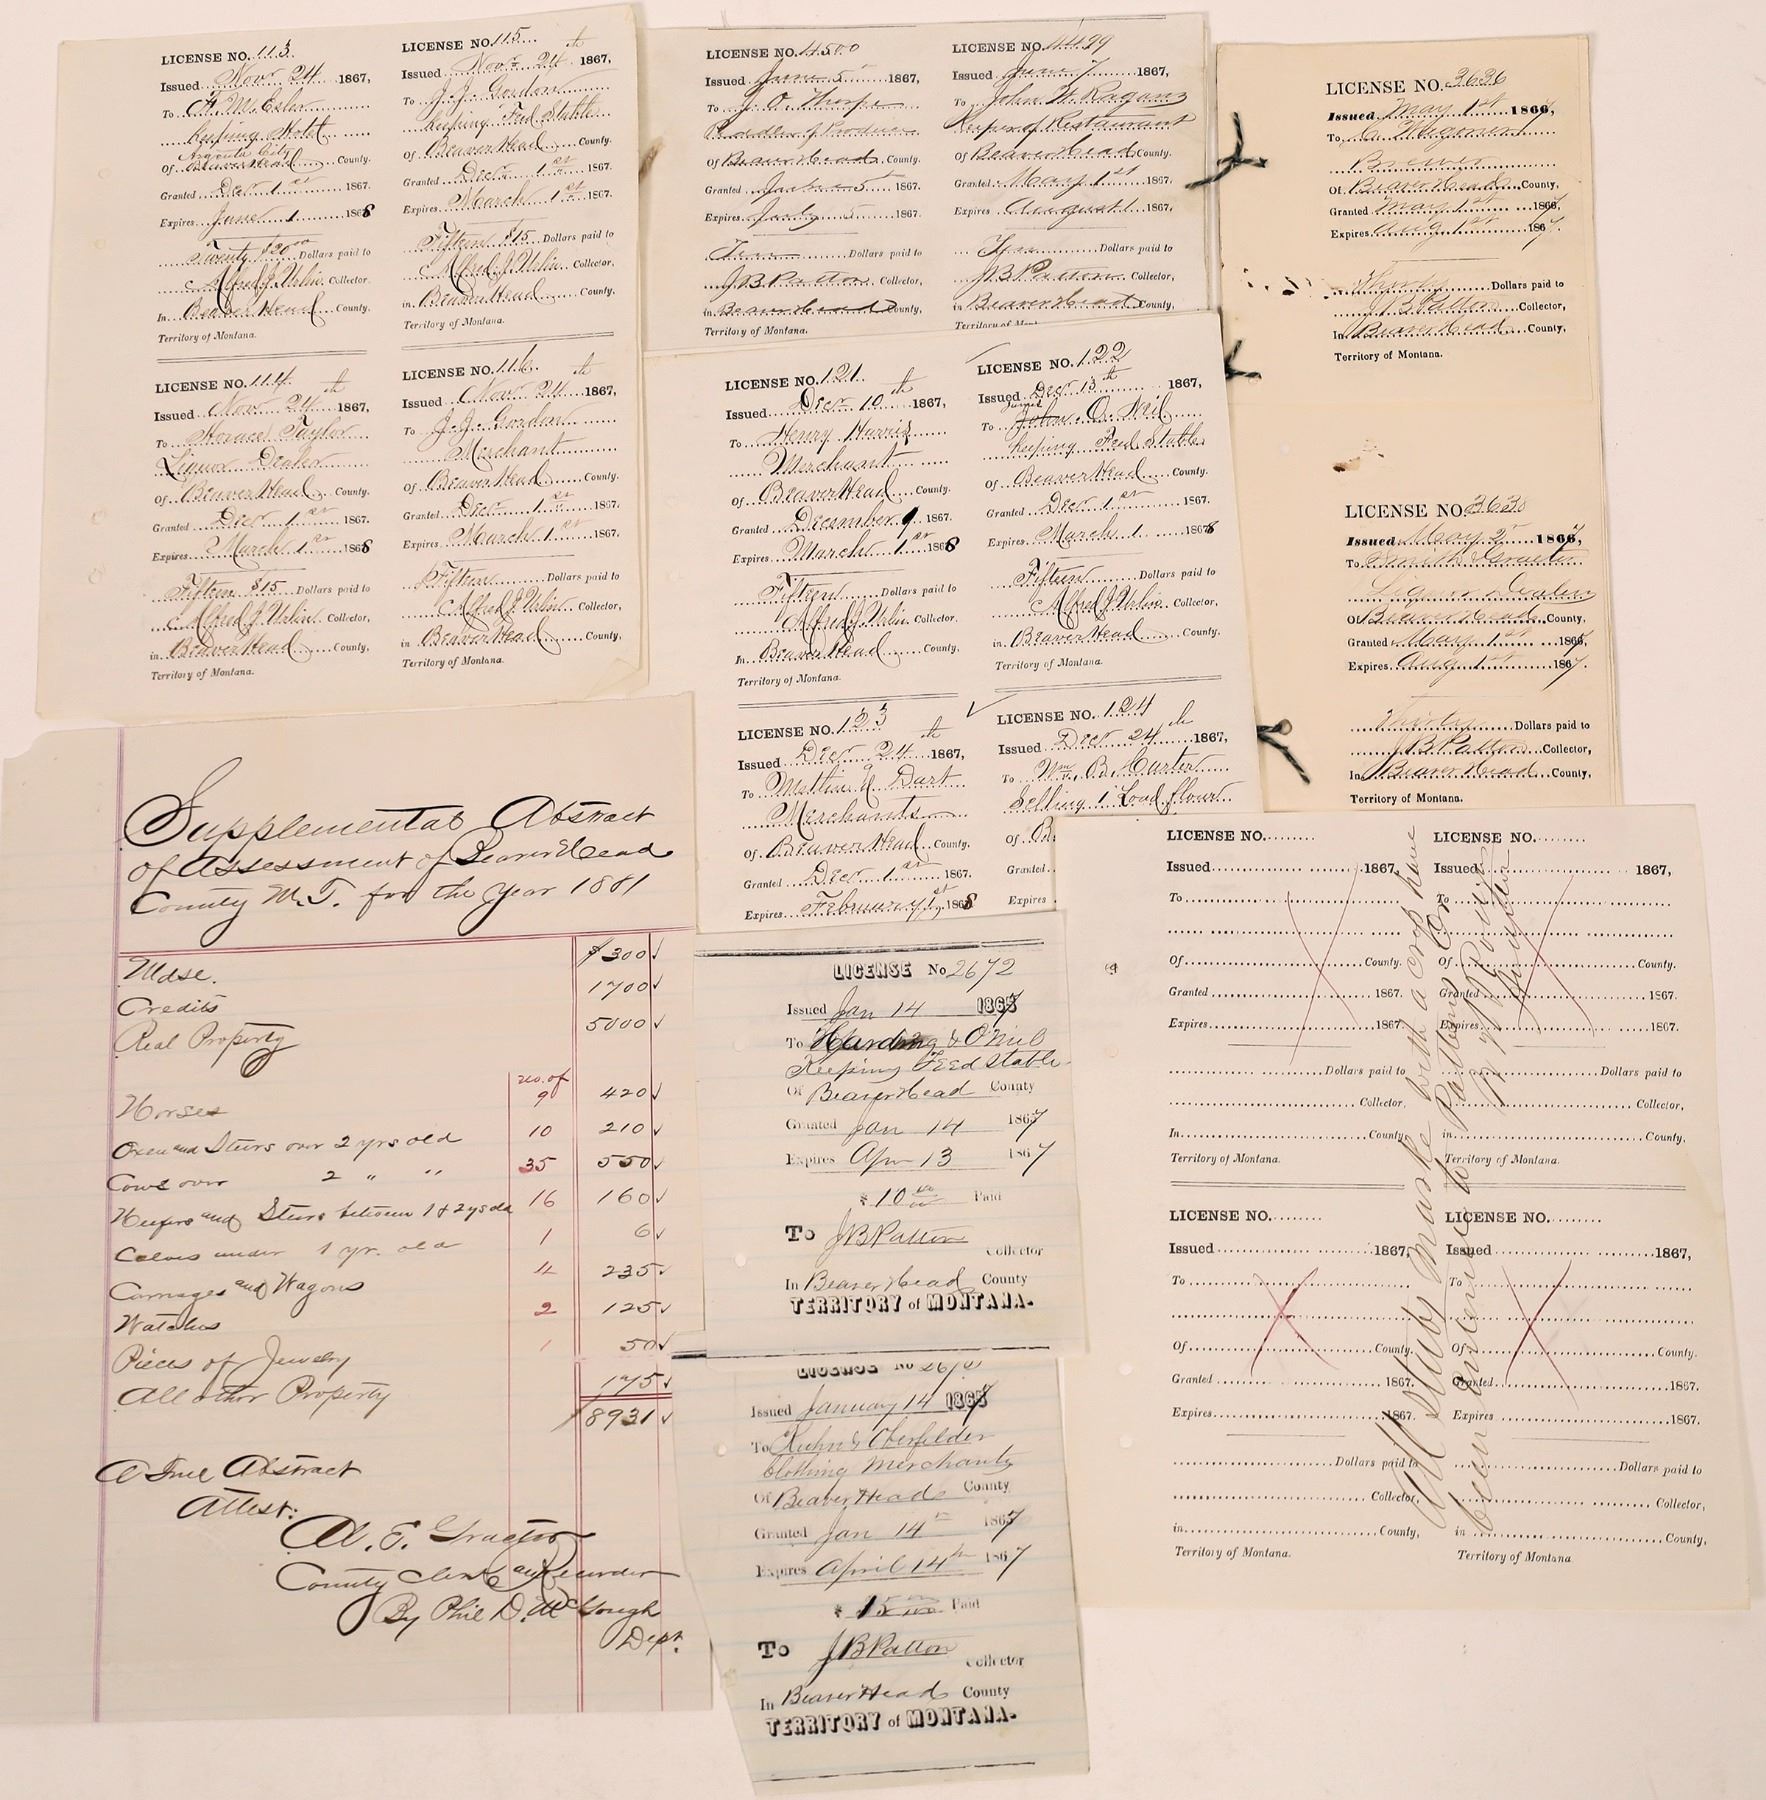 LICENSE NO. 113
Issued Nov 24 1867,
To
Keeping Hotel
Argenta City
Of Beaver Head County.
Granted Dec 1st 1867.
Expires June 1 1868
Twenty $20.00 Dollars paid to
Alfred J. Urlin Collector.
In Beaver Head County.
Territory of Montana.
LICENSE NO. 115
Issued Nov 24th 1867,
To J. J. Gordon
Keeping Feed Stable
Of Beaver Head County.
Granted Dec 1st 1867.
Expires March 1st 1867.
Fifteen $15 Dollars paid to
Alfred J. Urlin Collector,
in Beaver Head County,
Territory of Montana.
LICENSE NO. 114
Issued Nov 24th 1867,
To Horace Taylor
Liquor Dealer
Of Beaver Head County.
Granted Dec 1st 1867.
Expires March 1st 1868
Fifteen $15 Dollars paid to
Alfred J. Urlin Collector,
in Beaver Head County,
Territory of Montana.
LICENSE NO. 116
Issued Nov 24th 1867,
To J. J. Gordon
Merchant
Of Beaver Head County.
Granted Dec 1st 1867.
Expires March 1st 1867.
Fifteen Dollars paid to
Alfred J. Urlin Collector,
in Beaver Head County,
Territory of Montana.
LICENSE NO. 4500
Issued June 5th 1867,
To J. O. Thorpe
Of Beaver Head County.
Granted June 5th 1867.
Expires July 5 1867.
Ten Dollars paid to
J B Patton Collector,
in Beaver Head County,
Territory of Montana.
LICENSE NO. 4499
Issued June 7 1867,
To John W. Ragan
Keeper of Restaurant
Of Beaver Head County.
Granted May 1st 1867.
Expires August 1 1867,
Ten Dollars paid to
J B Patton Collector,
in Beaver Head County,
Territory of Mont
LICENSE NO. 3636
Issued May 1st 1867,
To
Brewer
Of Beaver Head County,
Granted May 1st 1867,
Expires Aug 1st 1867.
Thirty Dollars paid to
J B Patton Collector,
In Beaver Head County,
Territory of Montana.
LICENSE NO. 3638
Issued May 2d 1867,
To Smith &
Liquor Dealers
Of Beaver Head County,
Granted May 1st 1867,
Expires Aug 1st 1867.
Thirty Dollars paid to
J B Patton Collector,
In Beaver Head County,
Territory of Montana.
LICENSE NO. 121
Issued Dec 10th 1867,
To Henry Harris
Merchant
Of Beaver Head County.
Granted December 9 1867.
Expires March 1st 1868
Fifteen Dollars paid to
Alfred J. Urlin Collector.
In Beaver Head County,
Territory of Montana.
LICENSE NO. 122
Issued Dec 13th 1867,
James
To John O. Neil
Keeping Feed Stable
Of Beaver Head County.
Granted Dec 1st 1867.
Expires March 1 1868
Fifteen Dollars paid to
Alfred J. Urlin Collector,
in Beaver Head County.
Territory of Montana.
LICENSE NO. 123
Issued Dec 24th 1867,
To & Dart
Merchants
Of Beaver Head County.
Granted Dec 1st 1867.
Expires February 1st 1868
LICENSE NO. 124
Issued Dec 24th 1867,
To Wm. B. Carter
Selling 1 Load flour
Of B
Granted
Expires
Supplemental Abstract
of Assessment of Beaver Head
County M.T. for the year 1881
Mdse. $300
Credits 1700
Real Property 5000
no. of
Horses 9 420
Oxen and Steers over 2 yrs old 10 210
Cows over 2 " " 35 550
Heifers and Steers between 1 & 2 ys old 16 160
Calves under 1 yr. old 1 6
Carriages and Wagons 4 235
Watches 2 125
Pieces of Jewelry 1 50
All other Property 175
$8931
A True Abstract
Attest:
County Clerk and Recorder
By Phil D. McGough
Dept.
LICENSE No 2672
Issued Jan 14 1867
To Harding & O'Neil
Keeping Feed Stable
Of Beaver Head County
Granted Jan 14 1867
Expires Apr 13 1867
$10 00/100 Paid
To J B Patton
Collector
In Beaver Head County
TERRITORY of MONTANA.
LICENSE No
Issued January 14 1867
To Kuhn & Oberfelder
Clothing Merchants
Of Beaver Head County
Granted Jan 14th 1867
Expires April 14th 1867
$15 00/100 Paid
To J B Patton
Collector
In Beaver Head County
TERRITORY of MONTANA.
LICENSE NO.
Issued 1867,
To
Of County.
Granted 1867.
Expires 1867.
Dollars paid to
Collector,
In County,
Territory of Montana.
LICENSE NO.
Issued 1867,
To
Of County.
Granted 1867.
Expires 1867.
Dollars paid to
Collector,
in County,
Territory of Montana.
LICENSE NO.
Issued 1867,
To
Of County.
Granted 1867.
Expires 1867.
Dollars paid to
Collector,
in County,
Territory of Montana.
LICENSE NO.
Issued 1867,
To
Of County.
Granted 1867.
Expires 1867.
Dollars paid to
Collector,
in County,
Territory of Montana
All Stubs Marked with a cross have
been to Patton